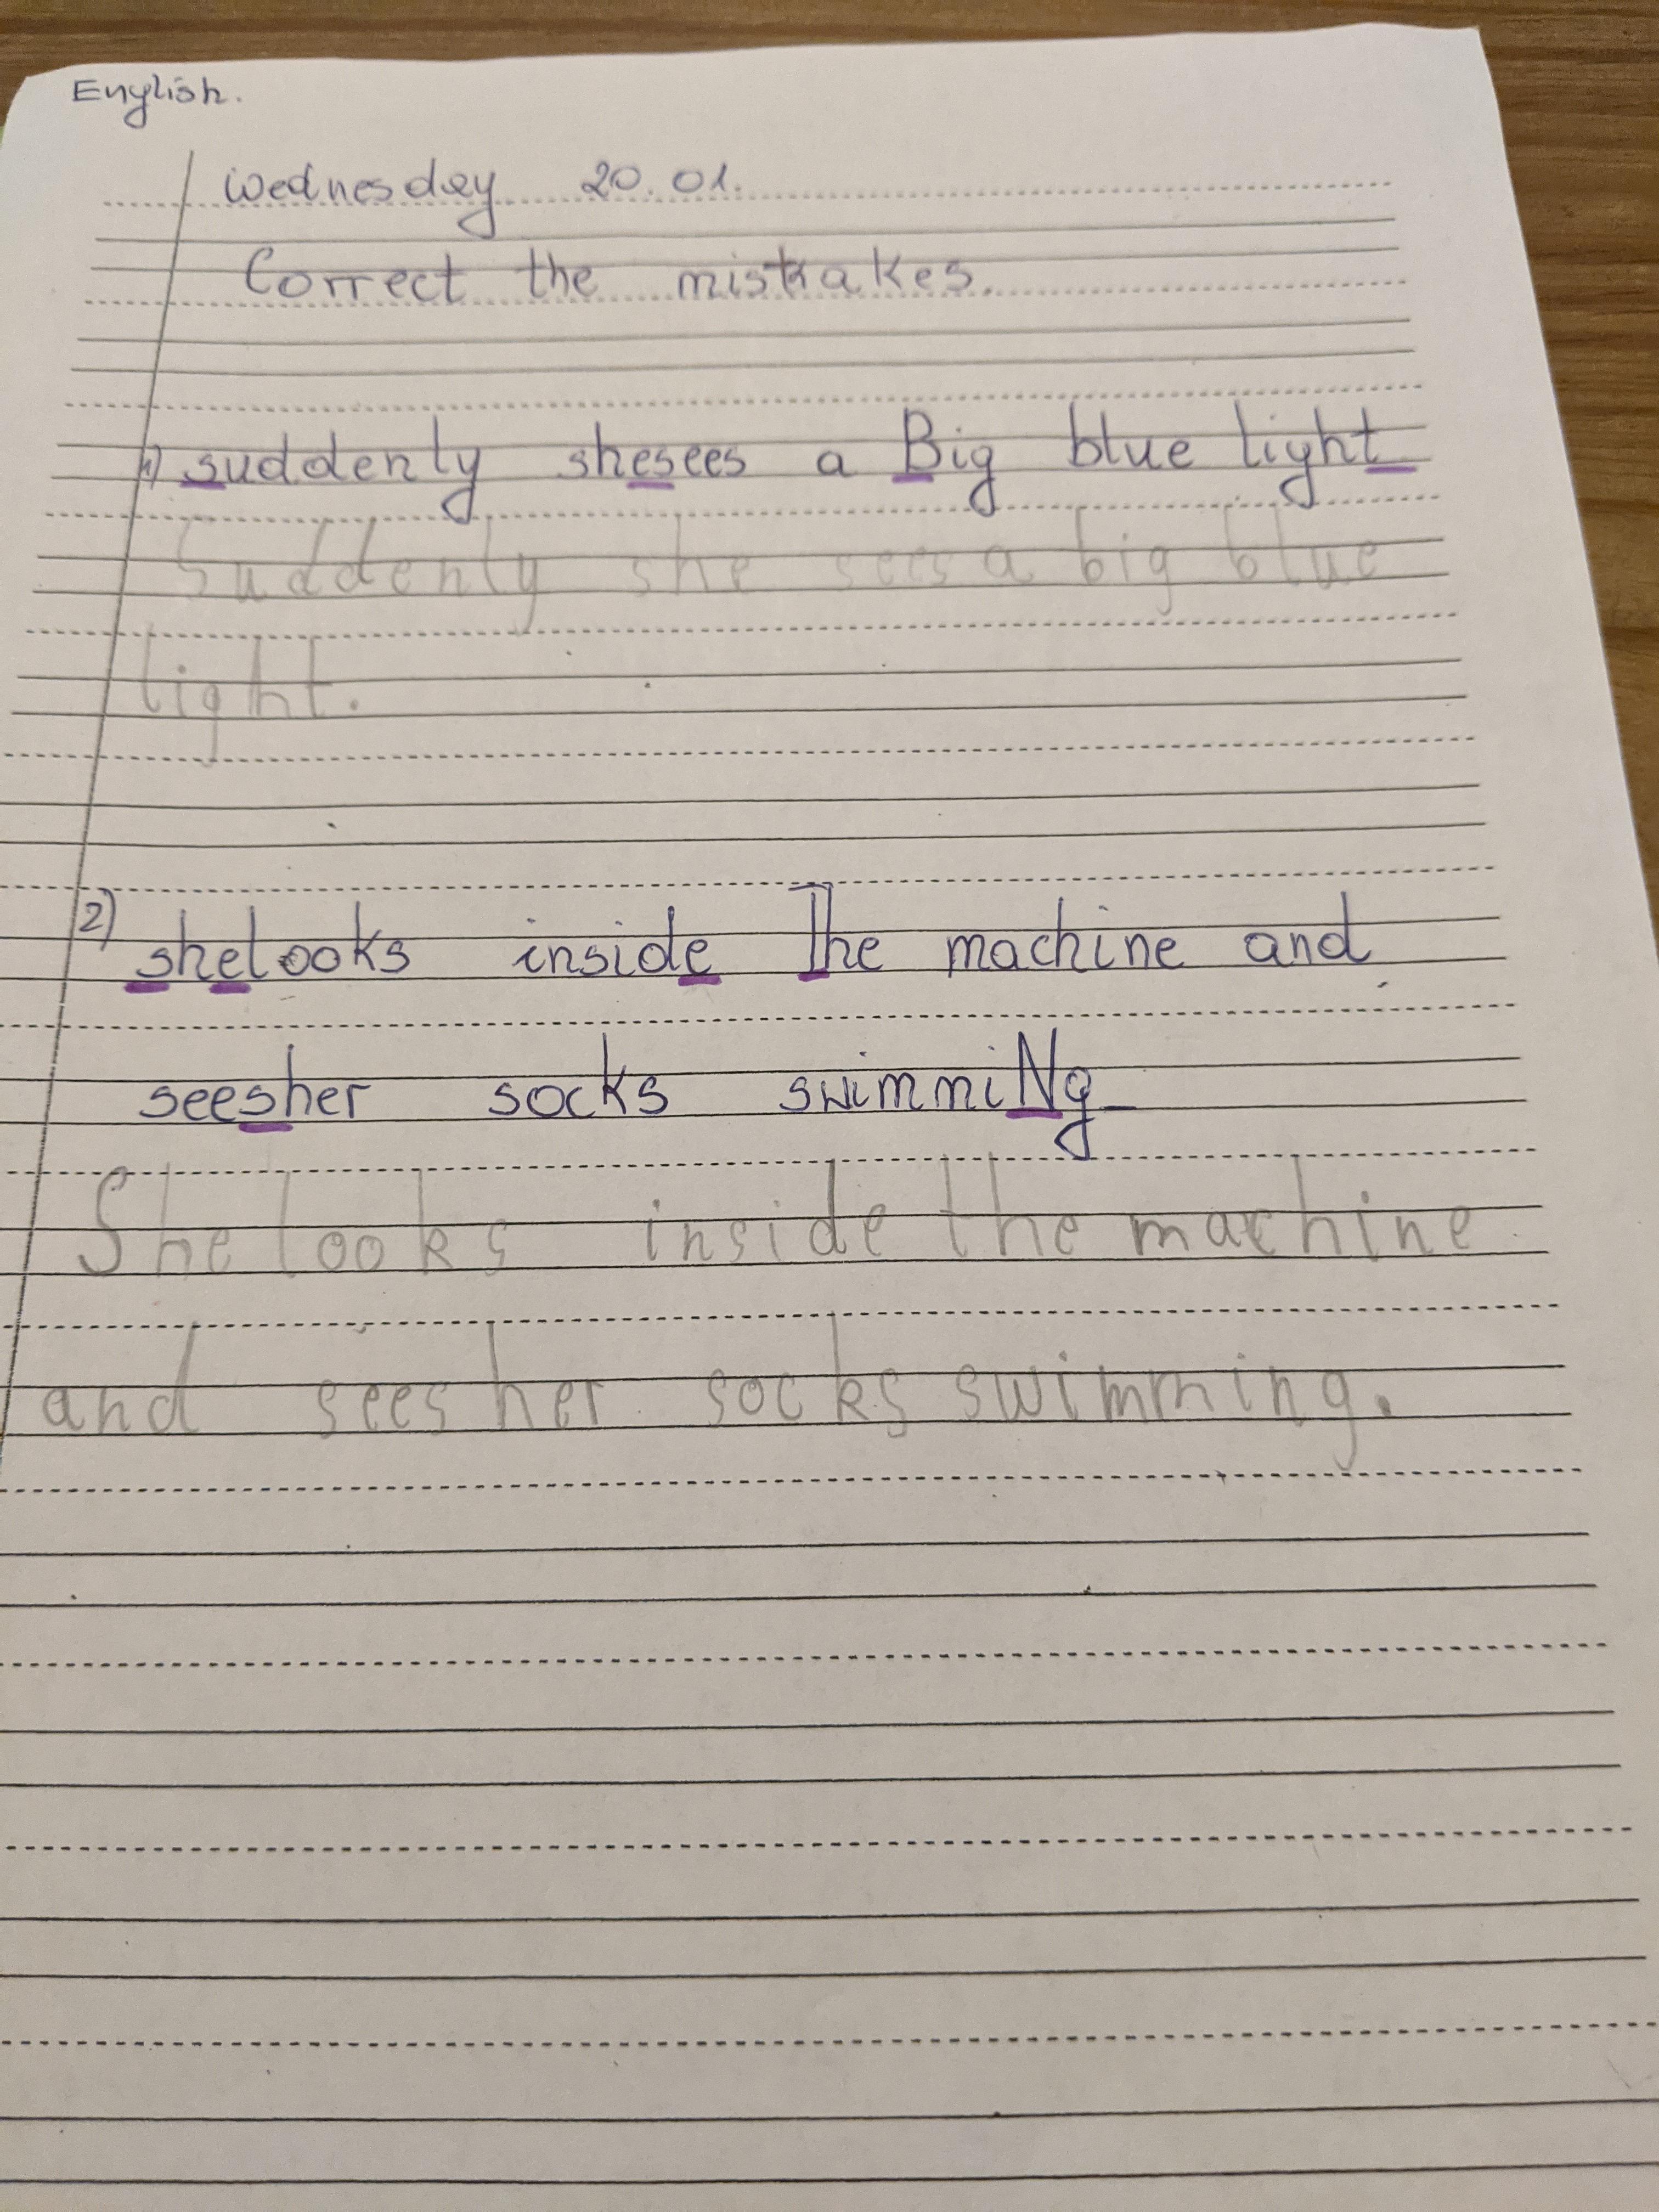 English.
Wednesday 20.01.
Correct the mistakes.
1) suddenly shesees a Big blue light
Suddenly she sees a big blue
light.
2) shelooks inside The machine and
seesher socks swimmiNg
She looks inside the machine
and sees her socks swimming.